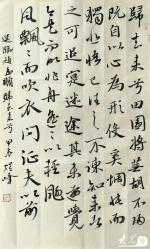 歸去来兮田園將芜胡不歸
既自以心為形役奚惆悵而
獨悲悟已往之不谏知来者
之可追實迷途其未遠覺
今是而昨非舟遙遙以輕颺
風飄飄而吹衣问征夫以前
歸去来兮 甲辰